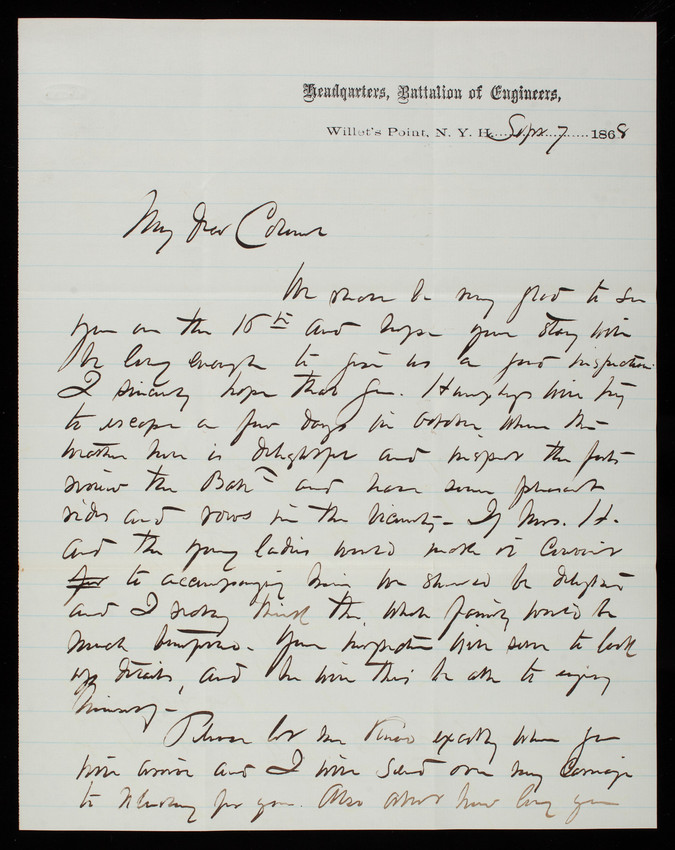 Headqarters, Battalion of Engineers,
Willet's Point, N. Y. H. Sept. 7 1868
My dear Colonel
We shall be very glad to see
you on the 15th and hope your stay will
be long enough to give us a good inspection.
I sincerely hope that Gen. Humphreys will try
to escape a few days in October when the
weather here is delightful and inspect the forts
review the Batn and have some pleasant
rides and rows in the vicinity - If Mrs. H.
and the young ladies would make it convenient
for to accompanying him we should be delighted
and I really think the whole family would be
much benefited. Your inspection will serve to look
up details, and he will thus be able to enjoy
himself -
Please let me know exactly when you
will arrive and I will send over my carriage
to Flushing for you. Also about how long you